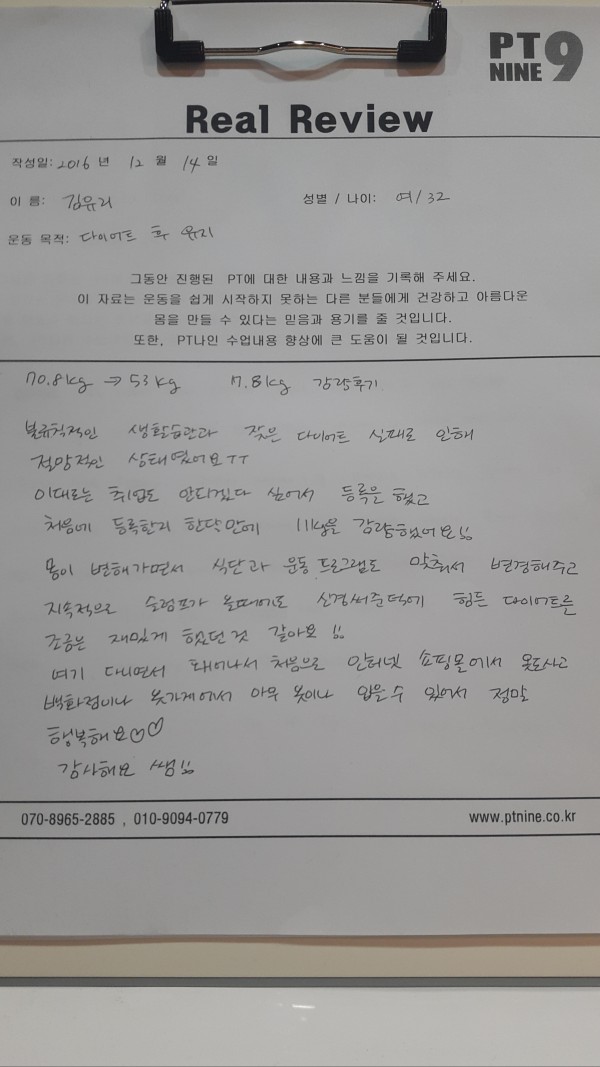 PT 9
NINE
Real Review
작성일: 2016 년 12 월 14 일
이 름: 김유리
성별 / 나이: 여/32
운동 목적: 다이어트 후 유지
그동안 진행된 PT에 대한 내용과 느낌을 기록해 주세요.
이 자료는 운동을 쉽게 시작하지 못하는 다른 분들에게 건강하고 아름다운
몸을 만들 수 있다는 믿음과 용기를 줄 것입니다.
또한, PT나인 수업내용 향상에 큰 도움이 될 것입니다.
70.8kg → 53kg 17.8kg 감량후기
불규칙적인 생활습관과 잦은 다이어트 실패로 인해
절망적인 상태였어요ㅜㅜ
이대로는 취업도 안되겠다 싶어서 등록을 했고
처음에 등록한지 한달만에 11kg을 감량했어요!!
몸이 변해가면서 식단과 운동 프로그램도 맞춰서 변경해주고
지속적으로 슬럼프가 올때에도 신경써준덕에 힘든 다이어트를
조금은 재밌게 했던것 같아요!!
여기 다니면서 태어나서 처음으로 인터넷 쇼핑몰에서 옷도사고
백화점이나 옷가게에서 아무 옷이나 입을수 있어서 정말
행복해요♡♡
감사해요 쌤!!
070-8965-2885 , 010-9094-0779
www.ptnine.co.kr